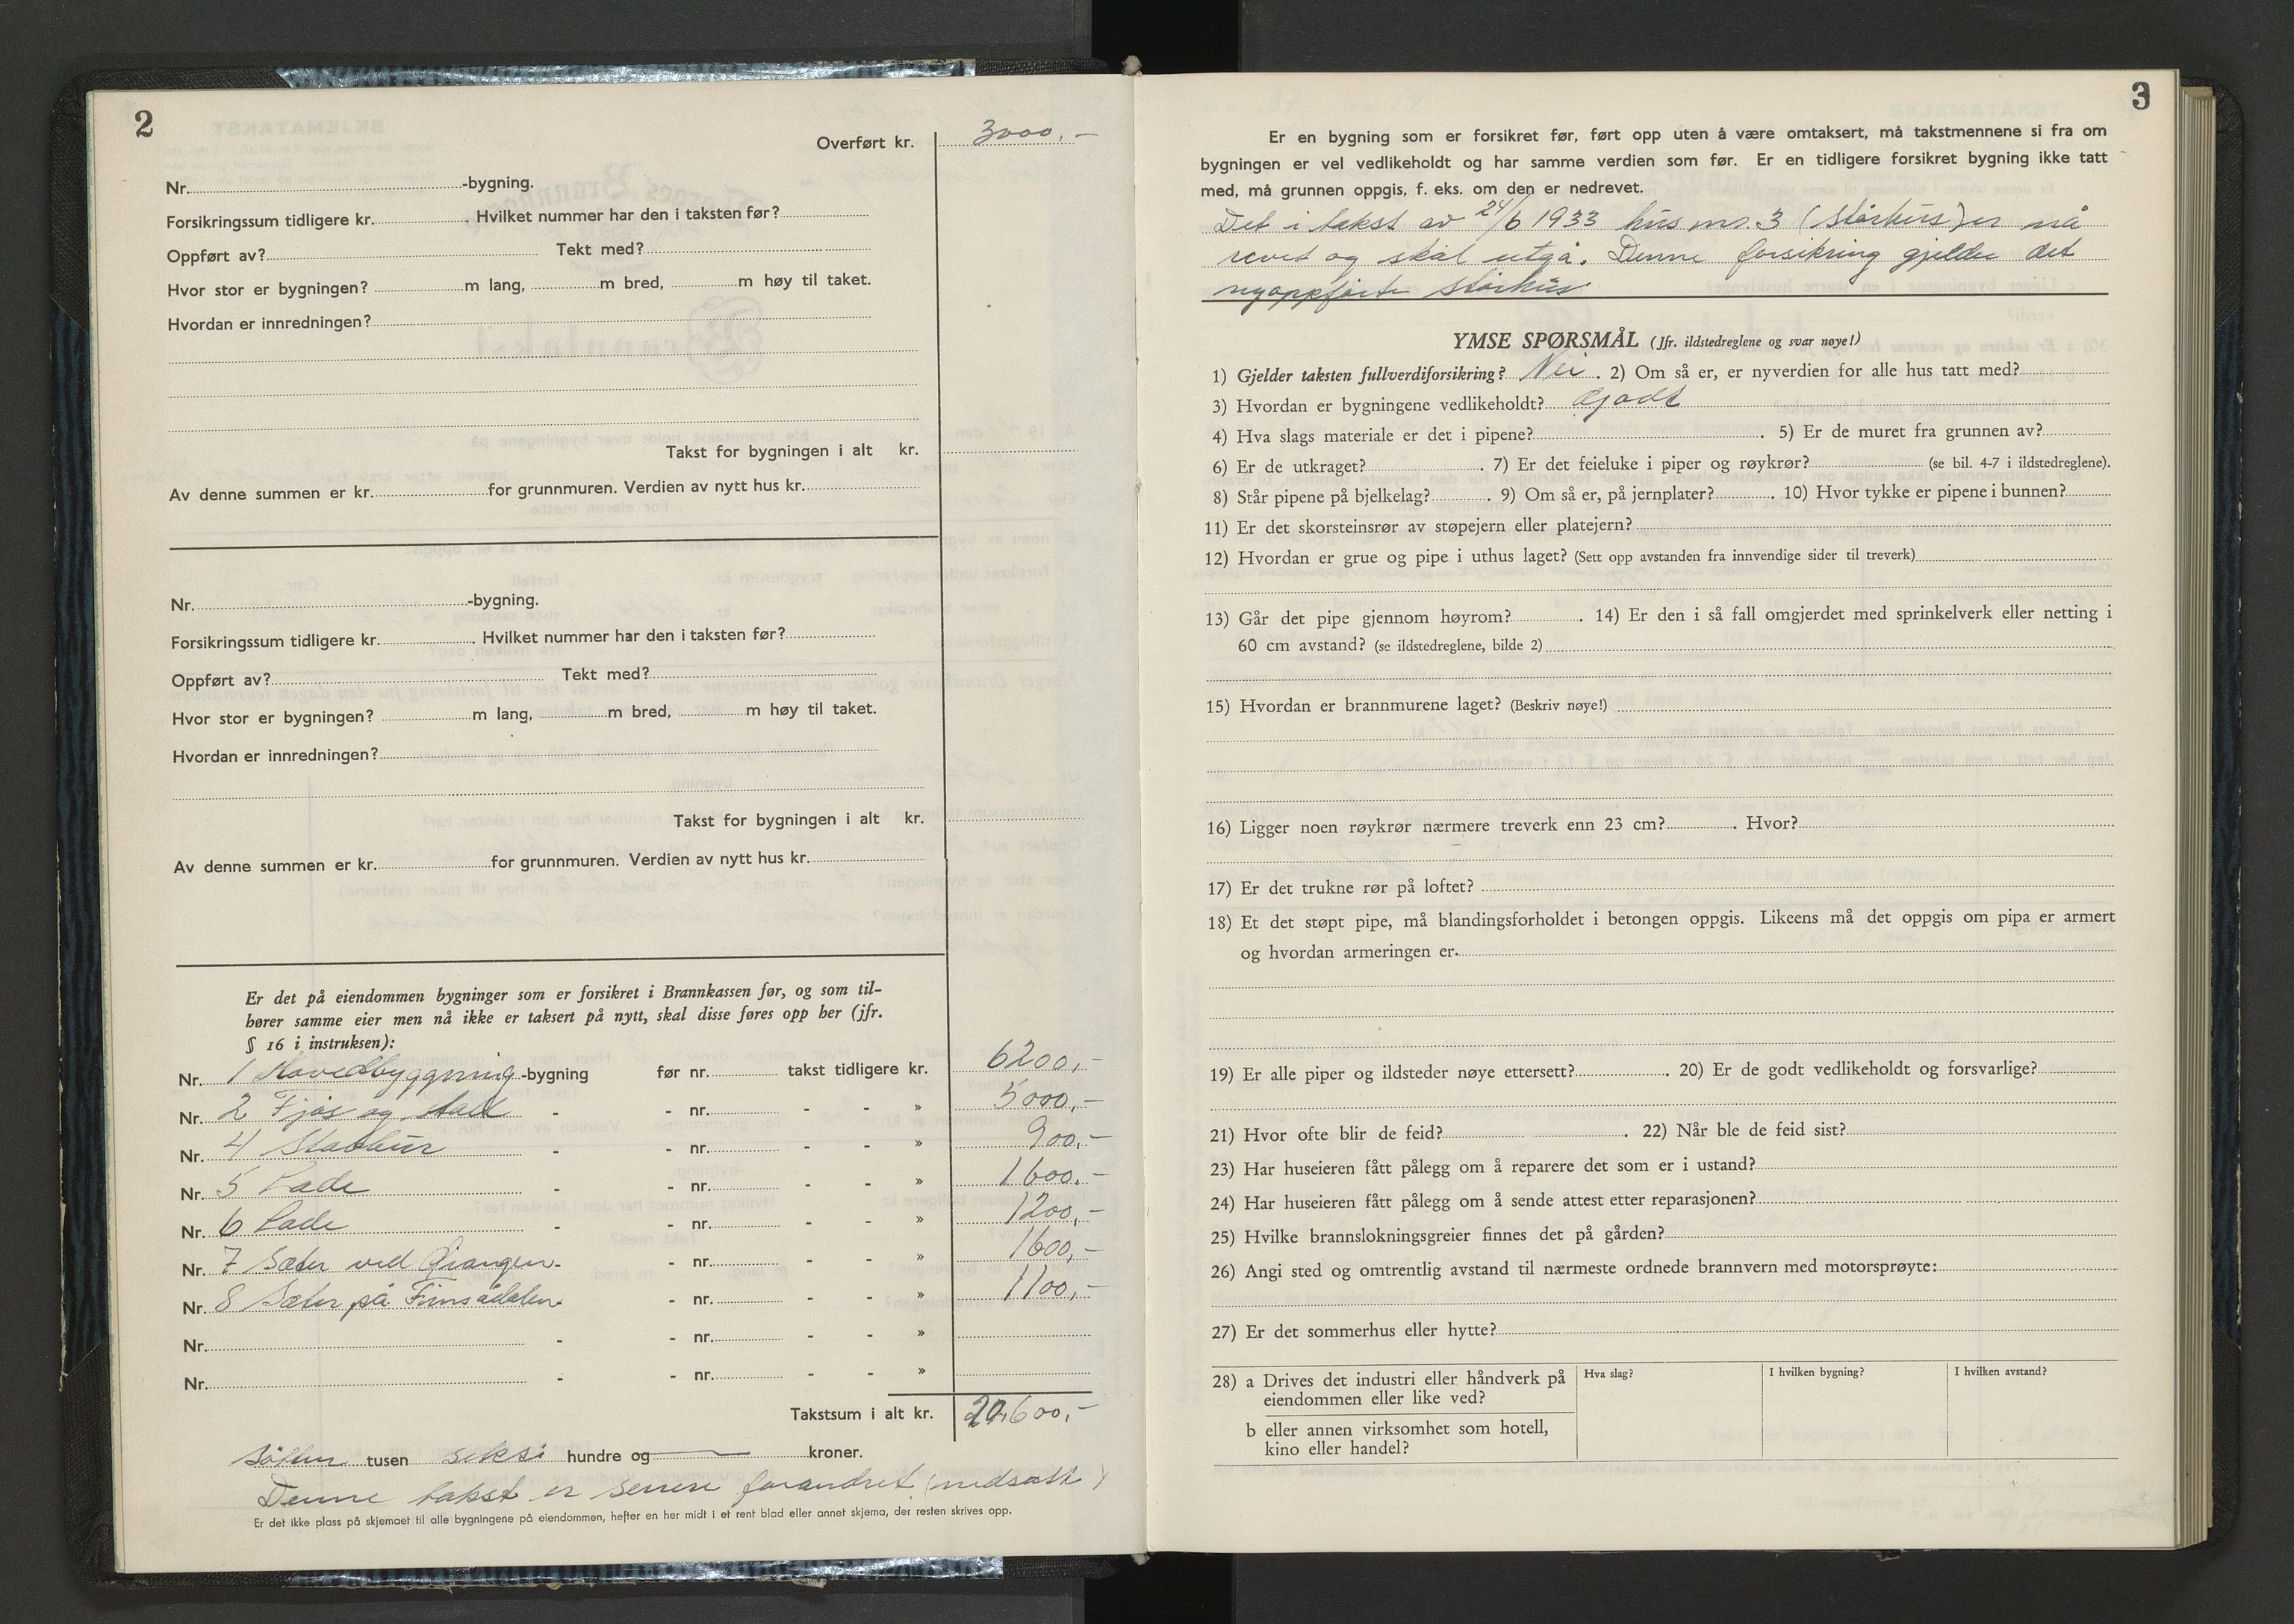 2
Overført kr. 3000,-
Nr. -bygning.
Forsikringssum tidligere kr. . Hvilket nummer har den i taksten før?
Oppført av? Tekt med?
Hvor stor er bygningen? m lang, m bred, m høy til taket.
Hvordan er innredningen?
Takst for bygningen i alt kr.
Av denne summen er kr. for grunnmuren. Verdien av nytt hus kr.
Nr. -bygning.
Forsikringssum tidligere kr. . Hvilket nummer har den i taksten før?
Oppført av? Tekt med?
Hvor stor er bygningen? m lang, m bred, m høy til taket.
Hvordan er innredningen?
Takst for bygningen i alt kr.
Av denne summen er kr. for grunnmuren. Verdien av nytt hus kr.
Er det på eiendommen bygninger som er forsikret i Brannkassen før, og som til-
hører samme eier men nå ikke er taksert på nytt, skal disse føres opp her (jfr.
§ 16 i instruksen):
Nr. 1 Hovedbyggning -bygning før nr. takst tidligere kr. 6200,-
Nr. 2 Fjøs og stall - - nr. - - » 5000,-
Nr. 4 Stabbur - - nr. - - » 900,-
Nr. 5 Lade - - nr. - - » 1600,-
Nr. 6 Lade - - nr. - - » 1200,-
Nr. 7 Sæter ved - nr. - - » 1600,-
Nr. 8 Sæter på - nr. - - » 1100,-
Nr. - - nr. - - »
Nr. - - nr. - - »
Takstsum i alt kr. 20,600,-
tusen seksi hundre og kroner.
Denne takst er senere forandret (nedsatt)
Er det ikke plass på skjemaet til alle bygningene på eiendommen, hefter en her midt i et rent blad eller annet skjema, der resten skrives opp.
3
Er en bygning som er forsikret før, ført opp uten å være omtaksert, må takstmennene si fra om
bygningen er vel vedlikeholdt og har samme verdien som før. Er en tidligere forsikret bygning ikke tatt
med, må grunnen oppgis, f. eks. om den er nedrevet.
Det i takst av 24/6 1933 hus nr. 3 (størhus) er nå
revet og skal utgå. Denne forsikring gjelder det
nyoppførte størhus
YMSE SPØRSMÅL (Jfr. ildstedreglene og svar nøye!)
1) Gjelder taksten fullverdiforsikring? Nei . 2) Om så er, er nyverdien for alle hus tatt med?
3) Hvordan er bygningene vedlikeholdt? Godt
4) Hva slags materiale er det i pipene? . 5) Er de muret fra grunnen av?
6) Er de utkraget? . 7) Er det feieluke i piper og røykrør? (se bil. 4-7 i ildstedreglene).
8) Står pipene på bjelkelag? . 9) Om så er, på jernplater? . 10) Hvor tykke er pipene i bunnen?
11) Er det skorsteinsrør av støpejern eller platejern?
12) Hvordan er grue og pipe i uthus laget? (Sett opp avstanden fra innvendige sider til treverk)
13) Går det pipe gjennom høyrom? . 14) Er den i så fall omgjerdet med sprinkelverk eller netting i
60 cm avstand? (se ildstedreglene, bilde 2)
15) Hvordan er brannmurene laget? (Beskriv nøye!)
16) Ligger noen røykrør nærmere treverk enn 23 cm? . Hvor?
17) Er det trukne rør på loftet?
18) Et det støpt pipe, må blandingsforholdet i betongen oppgis. Likeens må det oppgis om pipa er armert
og hvordan armeringen er.
19) Er alle piper og ildsteder nøye ettersett? . 20) Er de godt vedlikeholdt og forsvarlige?
21) Hvor ofte blir de feid? . 22) Når ble de feid sist?
23) Har huseieren fått pålegg om å reparere det som er i ustand?
24) Har huseieren fått pålegg om å sende attest etter reparasjonen?
25) Hvilke brannslokningsgreier finnes det på gården?
26) Angi sted og omtrentlig avstand til nærmeste ordnede brannvern med motorsprøyte:
27) Er det sommerhus eller hytte?
28) a Drives det industri eller håndverk på Hva slag? I hvilken bygning? I hvilken avstand?
eiendommen eller like ved?
b eller annen virksomhet som hotell,
kino eller handel?